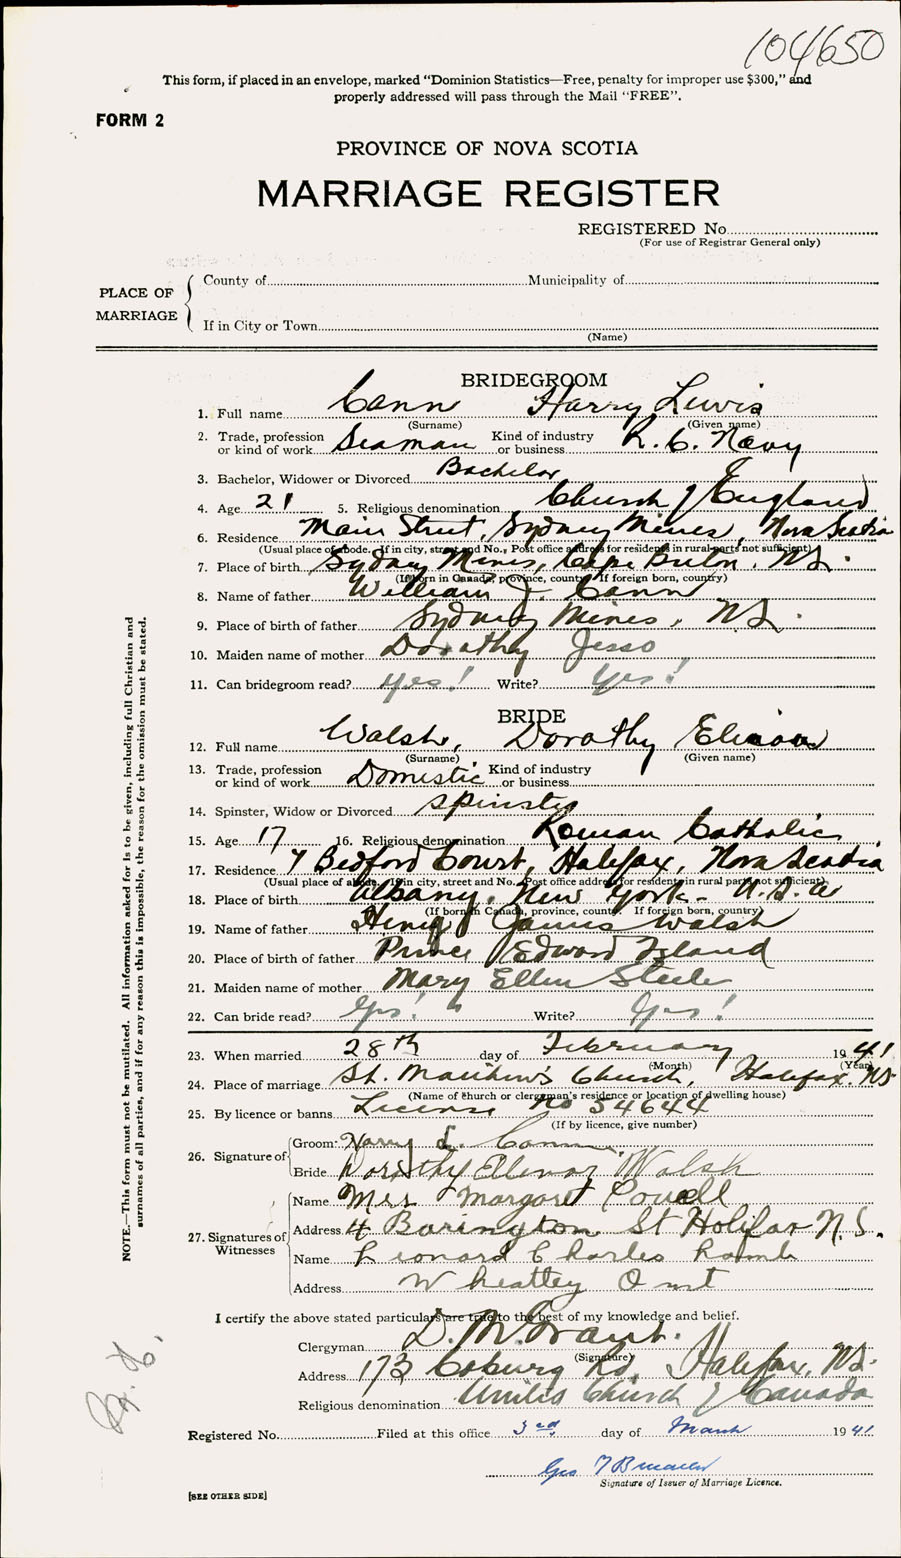 104650
This form, if placed in an envelope, marked "Dominion Statistics—Free, penalty for improper use $300," and
properly addressed will pass through the Mail "FREE".
FORM 2
PROVINCE OF NOVA SCOTIA
MARRIAGE REGISTER
REGISTERED No.
(For use of Registrar General only)
PLACE OF MARRIAGE
County of Municipality of
If in City or Town
(Name)
BRIDEGROOM
1. Full name Cann Harry Lewis
(Surname) (Given name)
2. Trade, profession or kind of work Seaman Kind of industry or business R. C. Navy
3. Bachelor, Widower or Divorced Bachelor
4. Age 21 5. Religious denomination Church of England
6. Residence Main Street, Sydney Mines, Nova Scotia
(Usual place of abode. If in city, street and No., Post office address for residents in rural parts not sufficient)
7. Place of birth Sydney Mines, Cape Breton, N.S.
(If born in Canada, province, county. If foreign born, country)
8. Name of father William J. Cann
9. Place of birth of father Sydney Mines, N.S.
10. Maiden name of mother Dorothy Jesso
11. Can bridegroom read? Yes! Write? Yes!
BRIDE
12. Full name Walsh, Dorothy Elinor
(Surname) (Given name)
13. Trade, profession or kind of work Domestic Kind of industry or business
14. Spinster, Widow or Divorced Spinster
15. Age 17 16. Religious denomination Roman Catholic
17. Residence 7 Bedford Court, Halifax, Nova Scotia
(Usual place of abode. If in city, street and No., Post office address for residents in rural parts not sufficient)
18. Place of birth Albany, New York - U.S.A
(If born in Canada, province, county. If foreign born, country)
19. Name of father Henry James Walsh
20. Place of birth of father Prince Edward Island
21. Maiden name of mother Mary Ellen Steele
22. Can bride read? Yes! Write? Yes!
23. When married 28th day of February 1941
(Month) (Year)
24. Place of marriage St. Matthew's Church, Halifax. NS
(Name of church or clergyman's residence or location of dwelling house)
25. By licence or banns License no 54644
(If by licence, give number)
26. Signature of
Groom Harry L. Cann
Bride Dorothy Ellinor Walsh
27. Signatures of Witnesses
Name Mrs Margaret Powell
Address 4 Barington St Halifax N.S.
Name Leonard Charles Lamb
Address Wheatley Ont
I certify the above stated particulars are true to the best of my knowledge and belief.
Clergyman D. M. Grant.
(Signature)
Address 173 Coburg Rd, Halifax, N.S.
Religious denomination United Church of Canada
Registered No. Filed at this office 3rd day of March 1941
Geo
Signature of Issuer of Marriage Licence.
[SEE OTHER SIDE]
NOTE.—This form must not be mutilated. All information asked for is to be given, including full Christian and
surnames of all parties, and if for any reason this is impossible, the reason for the omission must be stated.